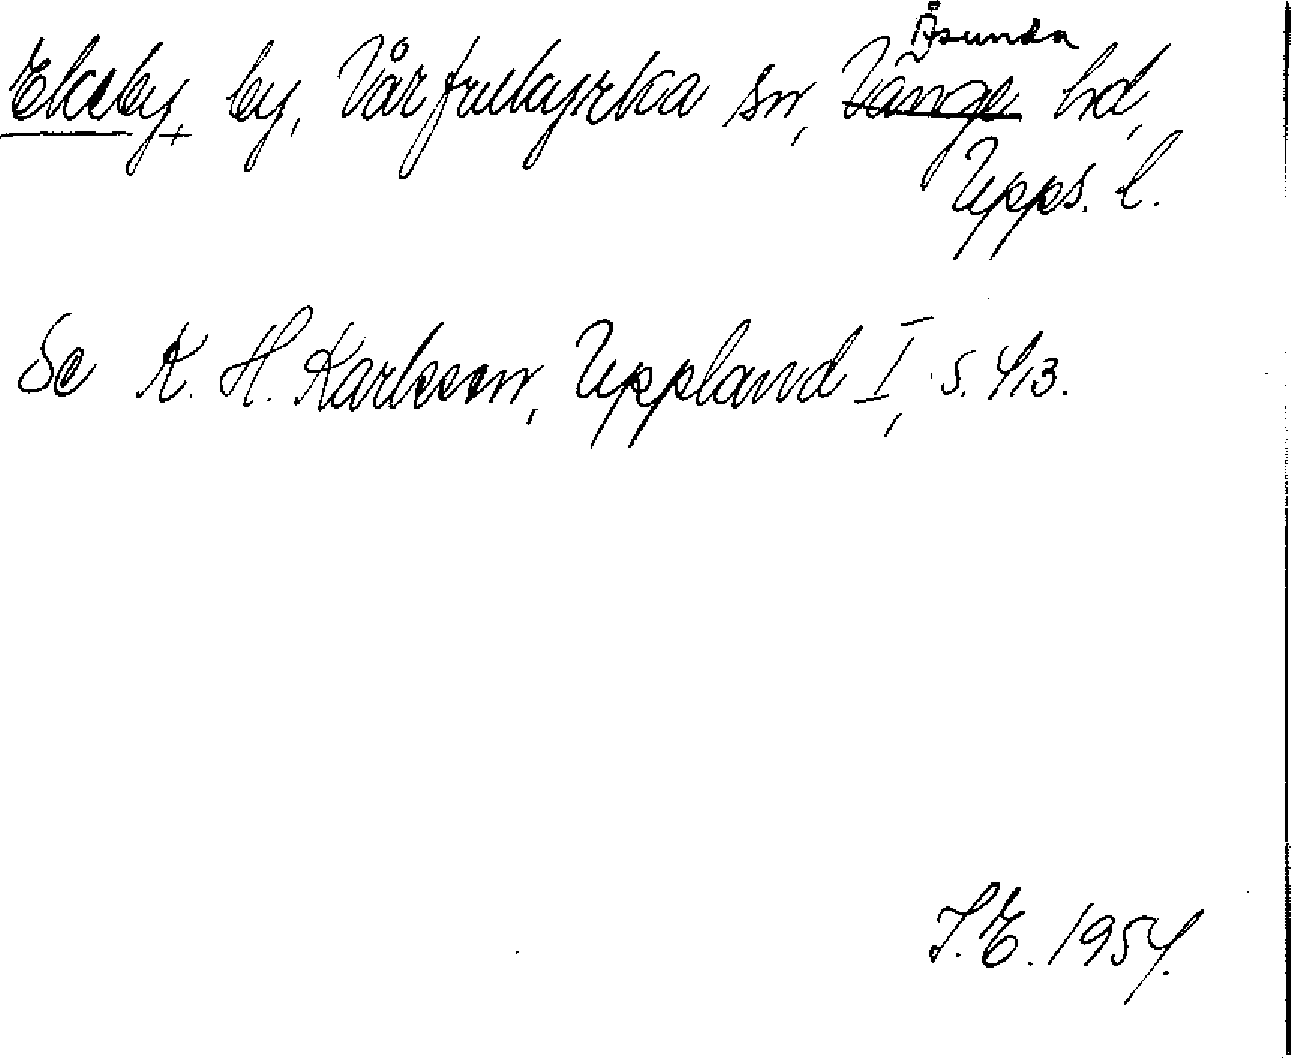 Åsunda
Ekeby, by, Vårfrukyrka sn, Vånge hd,
Upps. l.
Se K. H. Karlsson, Uppland I, s. 413.
I.E. 1954.